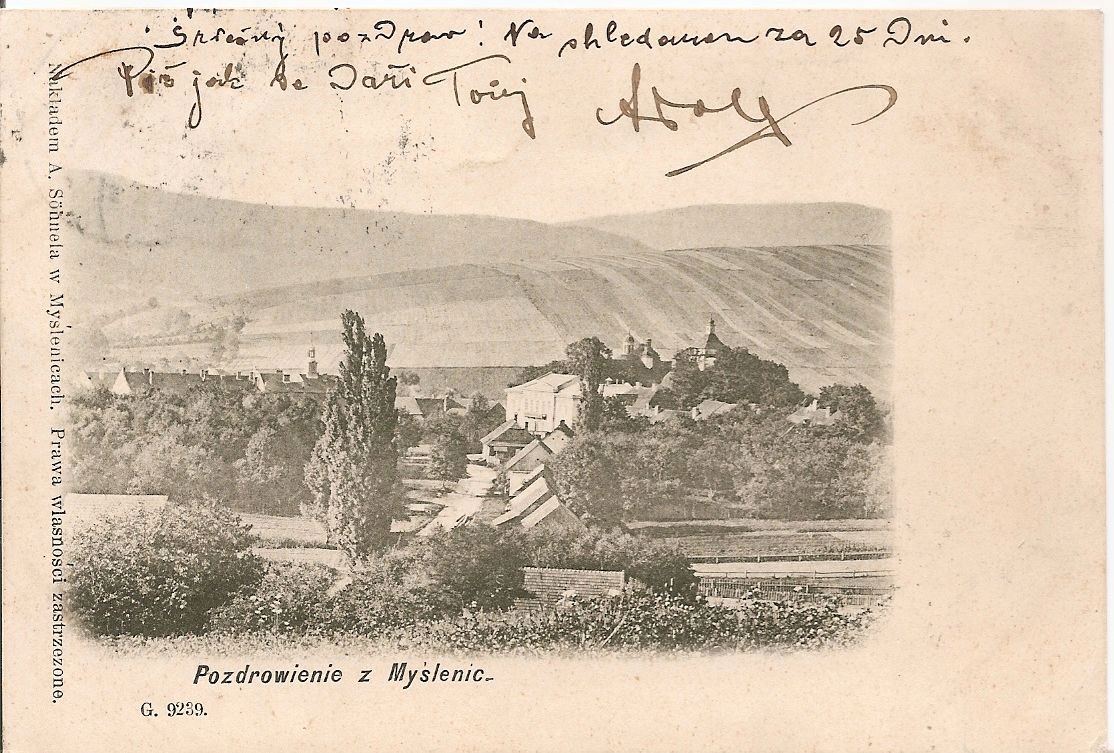 Srdečný pozdrav! Na shledanou za 25 Dní.
Piš jak se Daří Tvůj Adolf
Nakładem A. Söhnela w Myślenicach. Prawa własności zastrzeżone.
Pozdrowienie z Myślenic.
G. 9239.